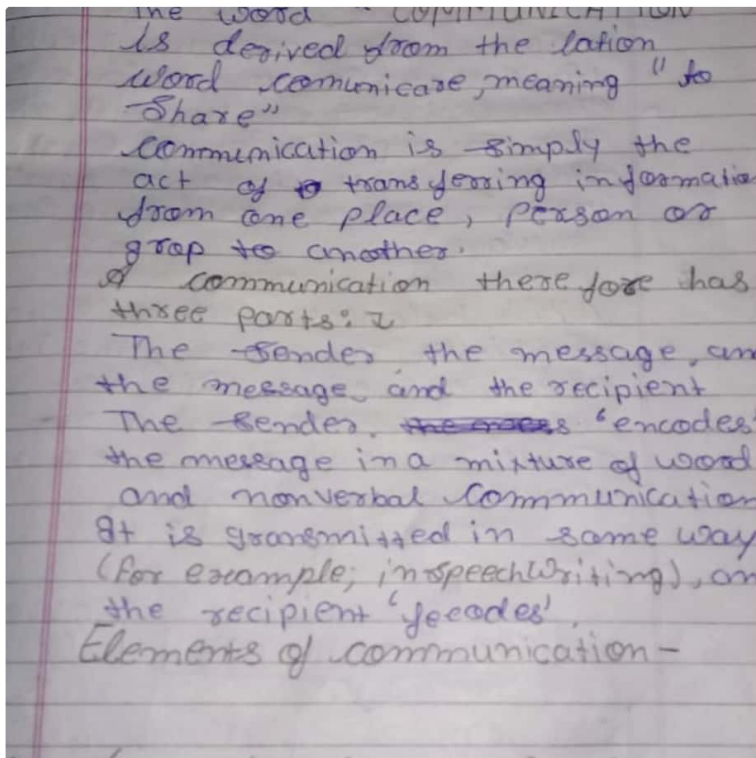 The word COMMUNICATION
is derived from the lation
word comunicare, meaning "to
Share"
Communication is simply the
act of transferring informatio
from one place, person or
grop to another.
A communication there fore has
three parts:
The sender the message, an
the message, and the recipient
The sender, 'encodes'
the message in a mixture of word
and nonverbal communication
It is gransmitted in same way
(for example; in speech writing), an
the recipient 'fecodes'.
Elements of communication -